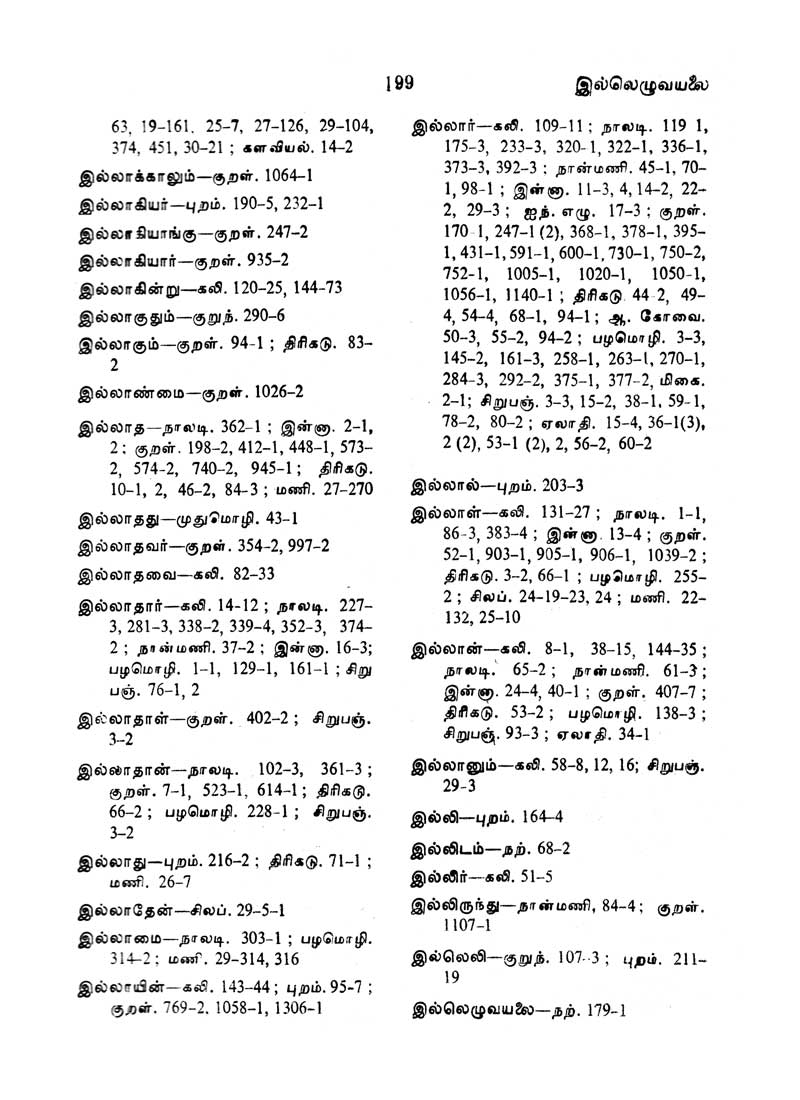 199
இல்லெழுவயலை
63, 19-161. 25-7, 27-126, 29-104,
374, 451, 30-21 ; களவியல். 14-2
இல்லாக்காலும்—குறள். 1064-1
இல்லாகியர்—புறம். 190-5, 232-1
இல்லாகியாங்கு—குறள். 247-2
இல்லாகியார்—குறள். 935-2
இல்லாகின்று—கலி. 120-25, 144-73
இல்லாகுதும்—குறுந். 290-6
இல்லாகும்—குறள். 94-1 ; திரிகடு. 83-
2
இல்லாண்மை—குறள். 1026-2
இல்லாத—நாலடி. 362-1 ; இன்னா. 2-1,
2 ; குறள். 198-2, 412-1, 448-1, 573-
2, 574-2, 740-2, 945-1 ; திரிகடு.
10-1, 2, 46-2, 84-3 ; மணி. 27-270
இல்லாதது—முதுமொழி. 43-1
இல்லாதவர்—குறள். 354-2, 997-2
இல்லாதவை—கலி. 82-33
இல்லாதார்—கலி. 14-12 ; நாலடி. 227-
3, 281-3, 338-2, 339-4, 352-3, 374-
2 ; நான்மணி. 37-2 ; இன்னா. 16-3;
பழமொழி. 1-1, 129-1, 161-1 ; சிறு
பஞ். 76-1, 2
இல்லாதாள்—குறள். 402-2 ; சிறுபஞ்.
3-2
இல்லாதான்—நாலடி. 102-3, 361-3 ;
குறள். 7-1, 523-1, 614-1 ; திரிகடு.
66-2 ; பழமொழி. 228-1 ; சிறுபஞ்.
3-2
இல்லாது—புறம். 216-2 ; திரிகடு. 71-1 ;
மணி. 26-7
இல்லாதேன்—சிலப். 29-5-1
இல்லாமை—நாலடி. 303-1 ; பழமொழி.
314-2 ; மணி. 29-314, 316
இல்லாயின்—கலி. 143-44 ; புறம். 95-7 ;
குறள். 769-2. 1058-1, 1306-1
இல்லார்—கலி. 109-11 ; நாலடி. 119 1,
175-3, 233-3, 320-1, 322-1, 336-1,
373-3, 392-3 : நான்மணி. 45-1, 70-
1, 98-1 ; இன்னா. 11-3, 4, 14-2, 22-
2, 29-3 ; ஐந். எழு. 17-3 ; குறள்.
170 1, 247-1 (2), 368-1, 378-1, 395-
1, 431-1, 591-1, 600-1, 730-1, 750-2,
752-1, 1005-1, 1020-1, 1050-1,
1056-1, 1140-1 ; திரிகடு. 44 2, 49-
4, 54-4, 68-1, 94-1 ; ஆ. கோவை.
50-3, 55-2, 94-2 ; பழமொழி. 3-3,
145-2, 161-3, 258-1, 263-1, 270-1,
284-3, 292-2, 375-1, 377-2, மிகை.
2-1; சிறுபஞ். 3-3, 15-2, 38-1, 59-1,
78-2, 80-2 ; ஏலாதி. 15-4, 36-1(3),
2 (2), 53-1 (2), 2, 56-2, 60-2
இல்லால்—புறம். 203-3
இல்லாள்—கலி. 131-27 ; நாலடி. 1-1,
86-3, 383-4 ; இன்னா. 13-4 ; குறள்.
52-1, 903-1, 905-1, 906-1, 1039-2 ;
திரிகடு. 3-2, 66-1 ; பழமொழி. 255-
2 ; சிலப். 24-19-23, 24 ; மணி. 22-
132, 25-10
இல்லான்—கலி. 8-1, 38-15, 144-35 ;
நாலடி. 65-2 ; நான்மணி. 61-3 ;
இன்னா. 24-4, 40-1 ; குறள். 407-7 ;
திரிகடு. 53-2 ; பழமொழி. 138-3 ;
சிறுபஞ். 93-3 ; ஏலாதி. 34-1
இல்லானும்—கலி. 58-8, 12, 16; சிறுபஞ்.
29-3
இல்லி—புறம். 164-4
இல்லிடம்—நற். 68-2
இல்லீர்—கலி. 51-5
இல்லிருந்து—நான்மணி, 84-4 ; குறள்.
1107-1
இல்லெலி—குறுந். 107-3 ; புறம். 211-
19
இல்லெழுவயலை—நற். 179-1